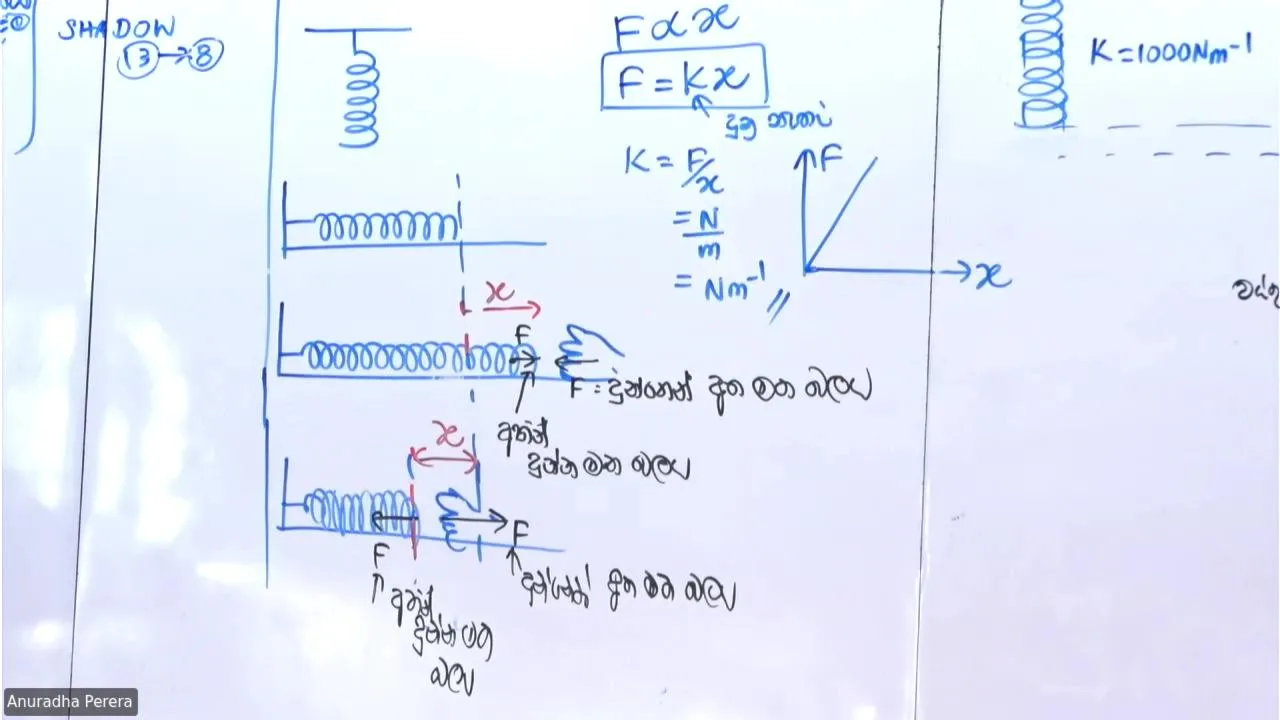 SHADOW
13 → 8
F ∝ x
F = Kx
දුනු නියතය
K = F/x
= N/m
= Nm⁻¹ //
F
x
x
F
F = දුන්නෙන් අත මත බලය
අතින්
දුන්න මත බලය
x
F
F
දුන්නෙන් අත මත බලය
අතින්
දුන්න මත
බලය
K = 1000Nm⁻¹
Anuradha Perera